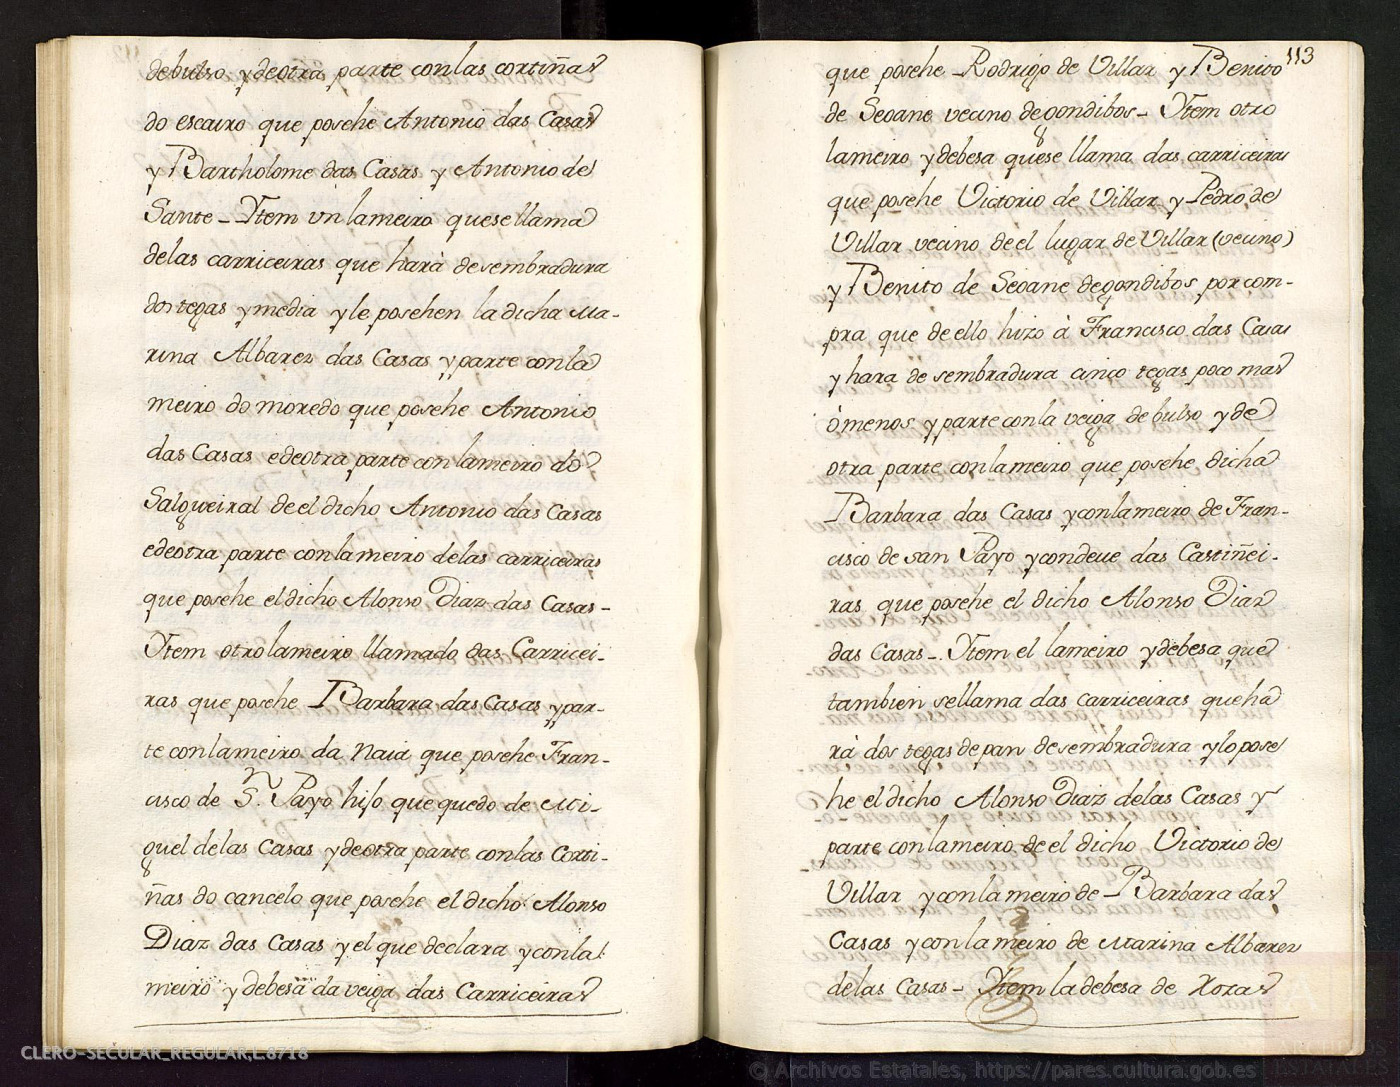 debulso ydeotra parte conlas cortiñas
do escairo que posehe Antonio das Casas
y Bartholome das Casas y Antonio de
Sante - Ytem vn lameiro quese llama
delas carriceiras que harà desembradura
dos tegas ymedia yle posehen la dicha Ma-
rina Albarez das Casas yparte conla
meiro do moredo que posehe Antonio
das Casas edeotra parte conlameiro do
Salgueiral de el dicho Antonio das Casas
edeotra parte conlameiro delas carriceiras
que posehe eldicho Alonso Diaz das Casas -
Ytem otrolameiro llamado das Carricei-
ras que posehe Barbara das Casas ypar-
te conlameiro da Naia que posehe Fran-
cisco de S.n Payo hijo que quedo de Mi-
guel delas Casas ydeotra parte conlas Corti-
ñas do cancelo que posehe el dicho Alonso
Diaz das Casas y el que declara yconla
meiro y debesa da veiga das Carriceiras
113
que posehe Rodrigo de Villar y Benito
de Seoane vecino degondibos - Ytem otro
lameiro ydebesa quese llama das carriceiras
que posehe Victorio de Villar y Pedro de
Villar vecino de el lugar de Villar (vecino)
y Benito de Seoane degondibos por com-
pra que de ello hizo à Francisco das Casas
y hara de sembradura cinco tegas poco mas
ò menos y parte con la veiga de bulso y de
otra parte conlameiro que posehe dicha
Barbara das Casas yconlameiro de Fran-
cisco de san Payo ycondeue das Castiñei-
ras que posehe el dicho Alonso Diaz
das Casas - Ytem el lameiro ydebesa que
tambien sellama das carriceiras queha
rà dos tegas de pan desembradura ylo pose
he el dicho Alonso Diaz delas Casas y
parte conlameiro de el dicho Victorio de
Villar yconlameiro de Barbara das
Casas yconlameiro de Marina Albarez
delas Casas - Ytem la debesa de Xoxas
CLERO-SECULAR_REGULAR,L.8718
© Archivos Estatales, https://pares.cultura.gob.es
ARCHIVOS
ESTATALES